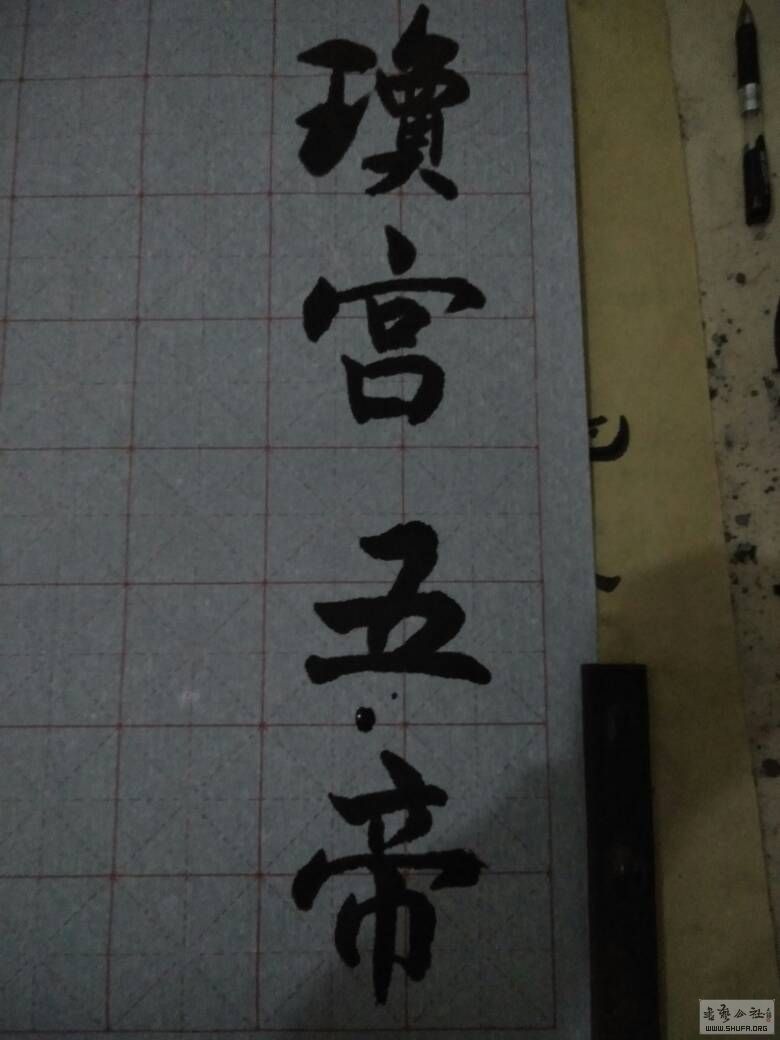 瓊宫五帝
書藝公社
WWW.SHUFA.ORG